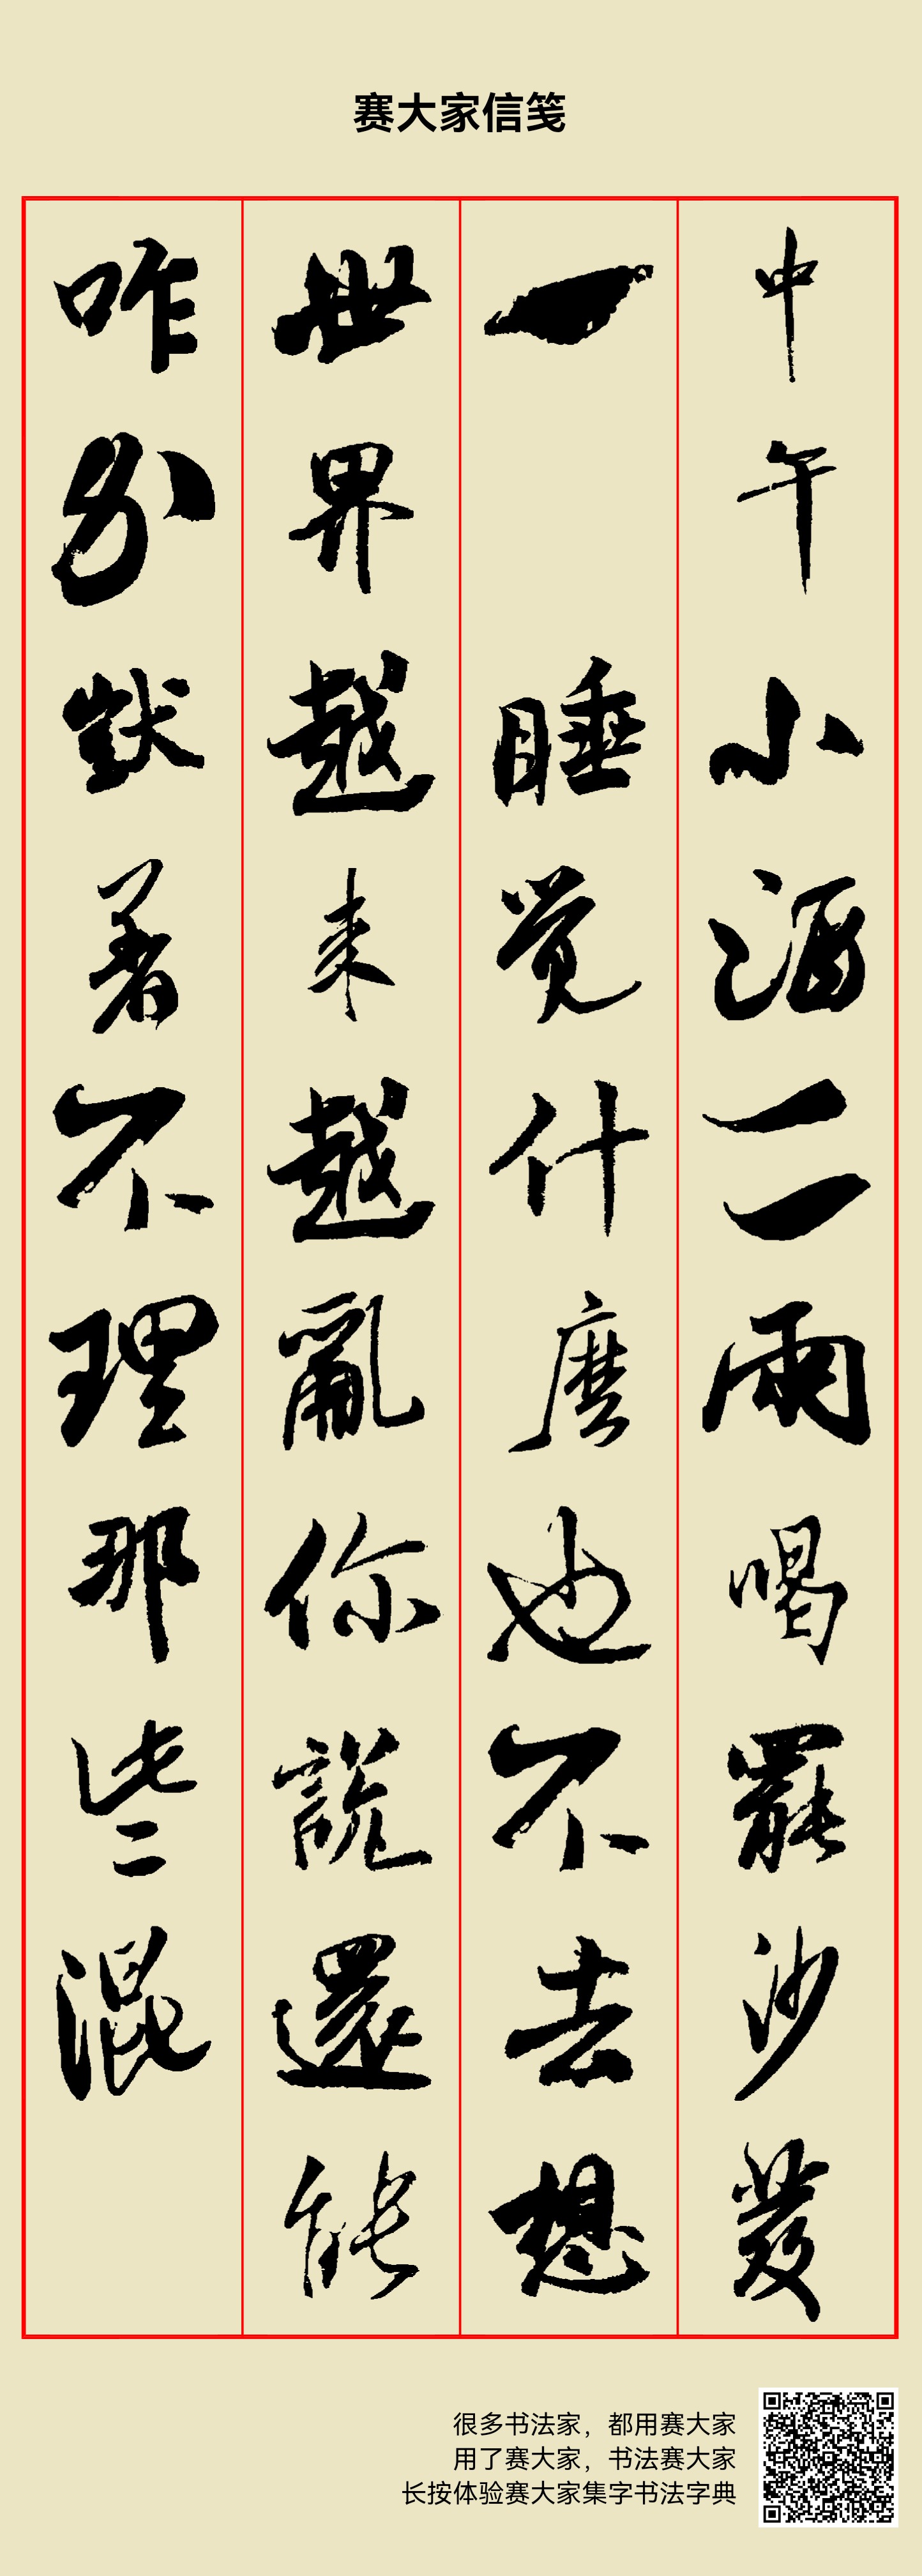 赛大家信笺
中午小酒二兩喝罷沙發
一 睡觉什麽也不去想
世界越来越亂你説還能
咋办獃着不理那些混
很多书法家，都用赛大家
用了赛大家，书法赛大家
长按体验赛大家集字书法字典